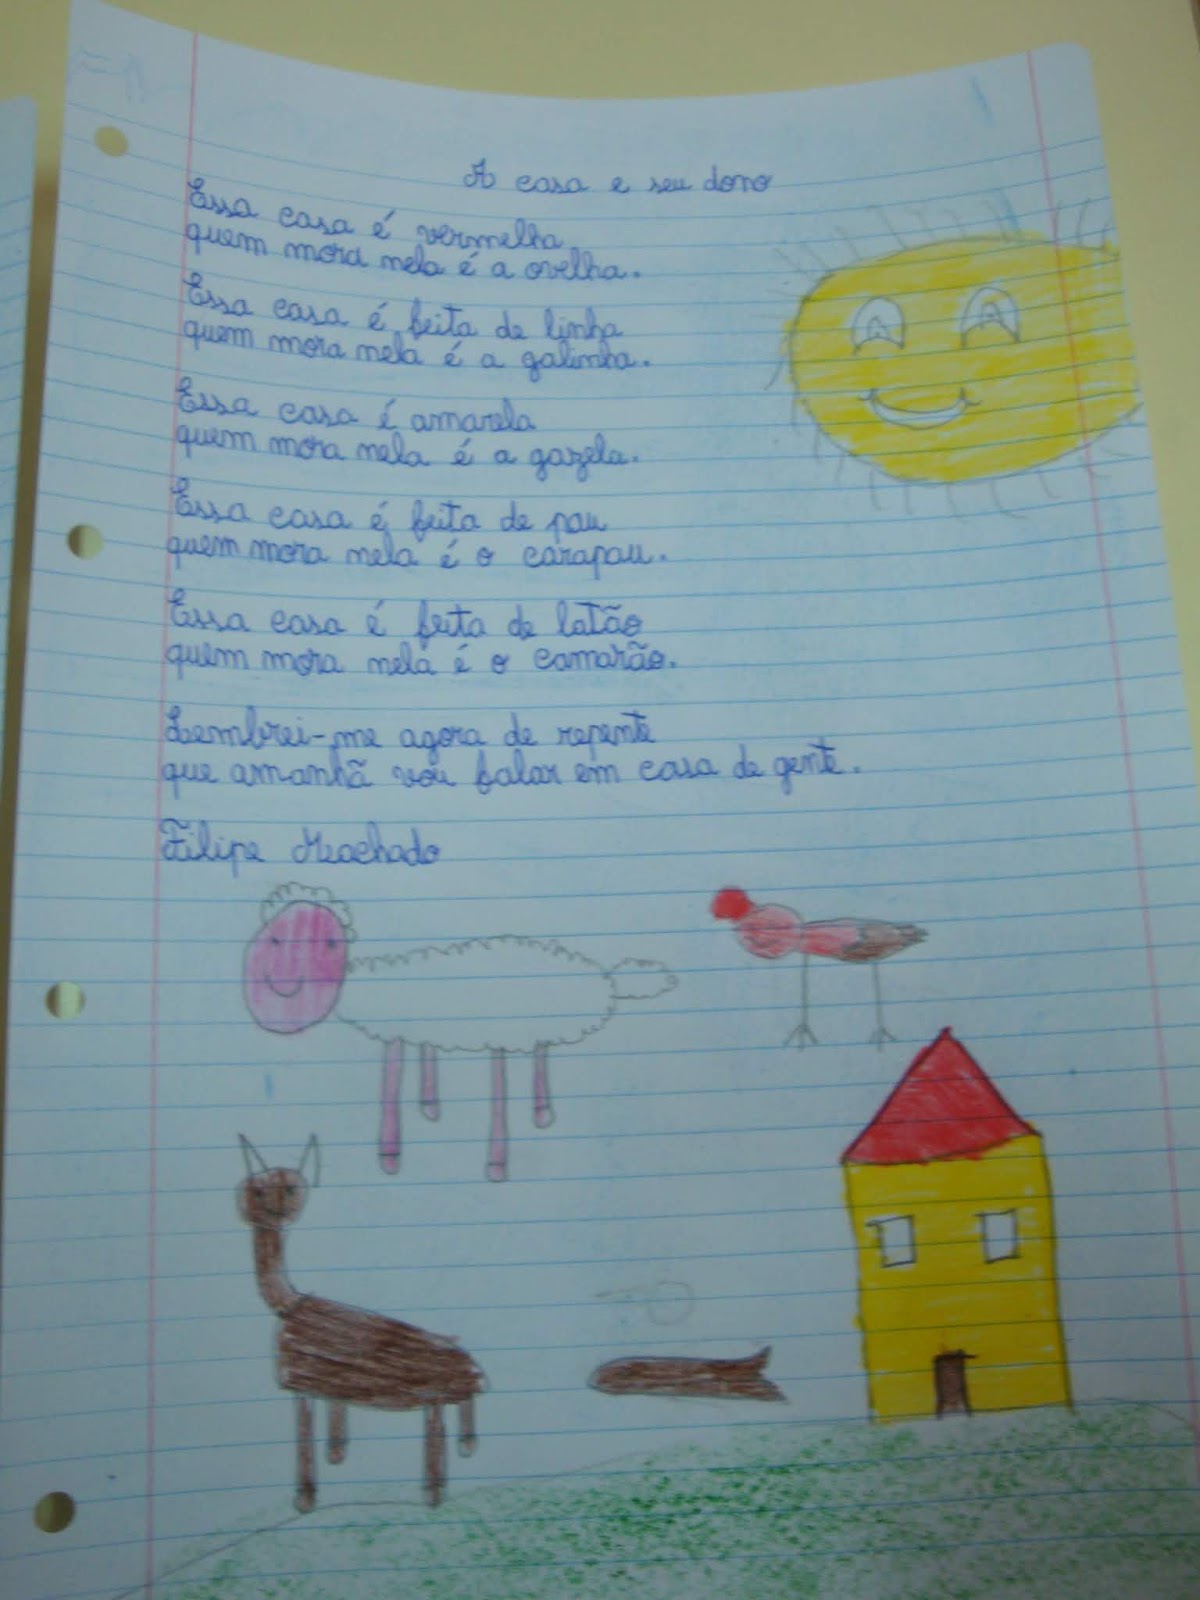 A casa e seu dono
Essa casa é vermelha
quem mora nela é a ovelha.
Essa casa é feita de linha
quem mora nela é a galinha.
Essa casa é amarela
quem mora nela é a gazela.
Essa casa é feita de pau
quem mora nela é o carapau.
Essa casa é feita de latão
quem mora nela é o camarão.
Lembrei-me agora de repente
que amanhã vou falar em casa de gente.
Filipe Machado